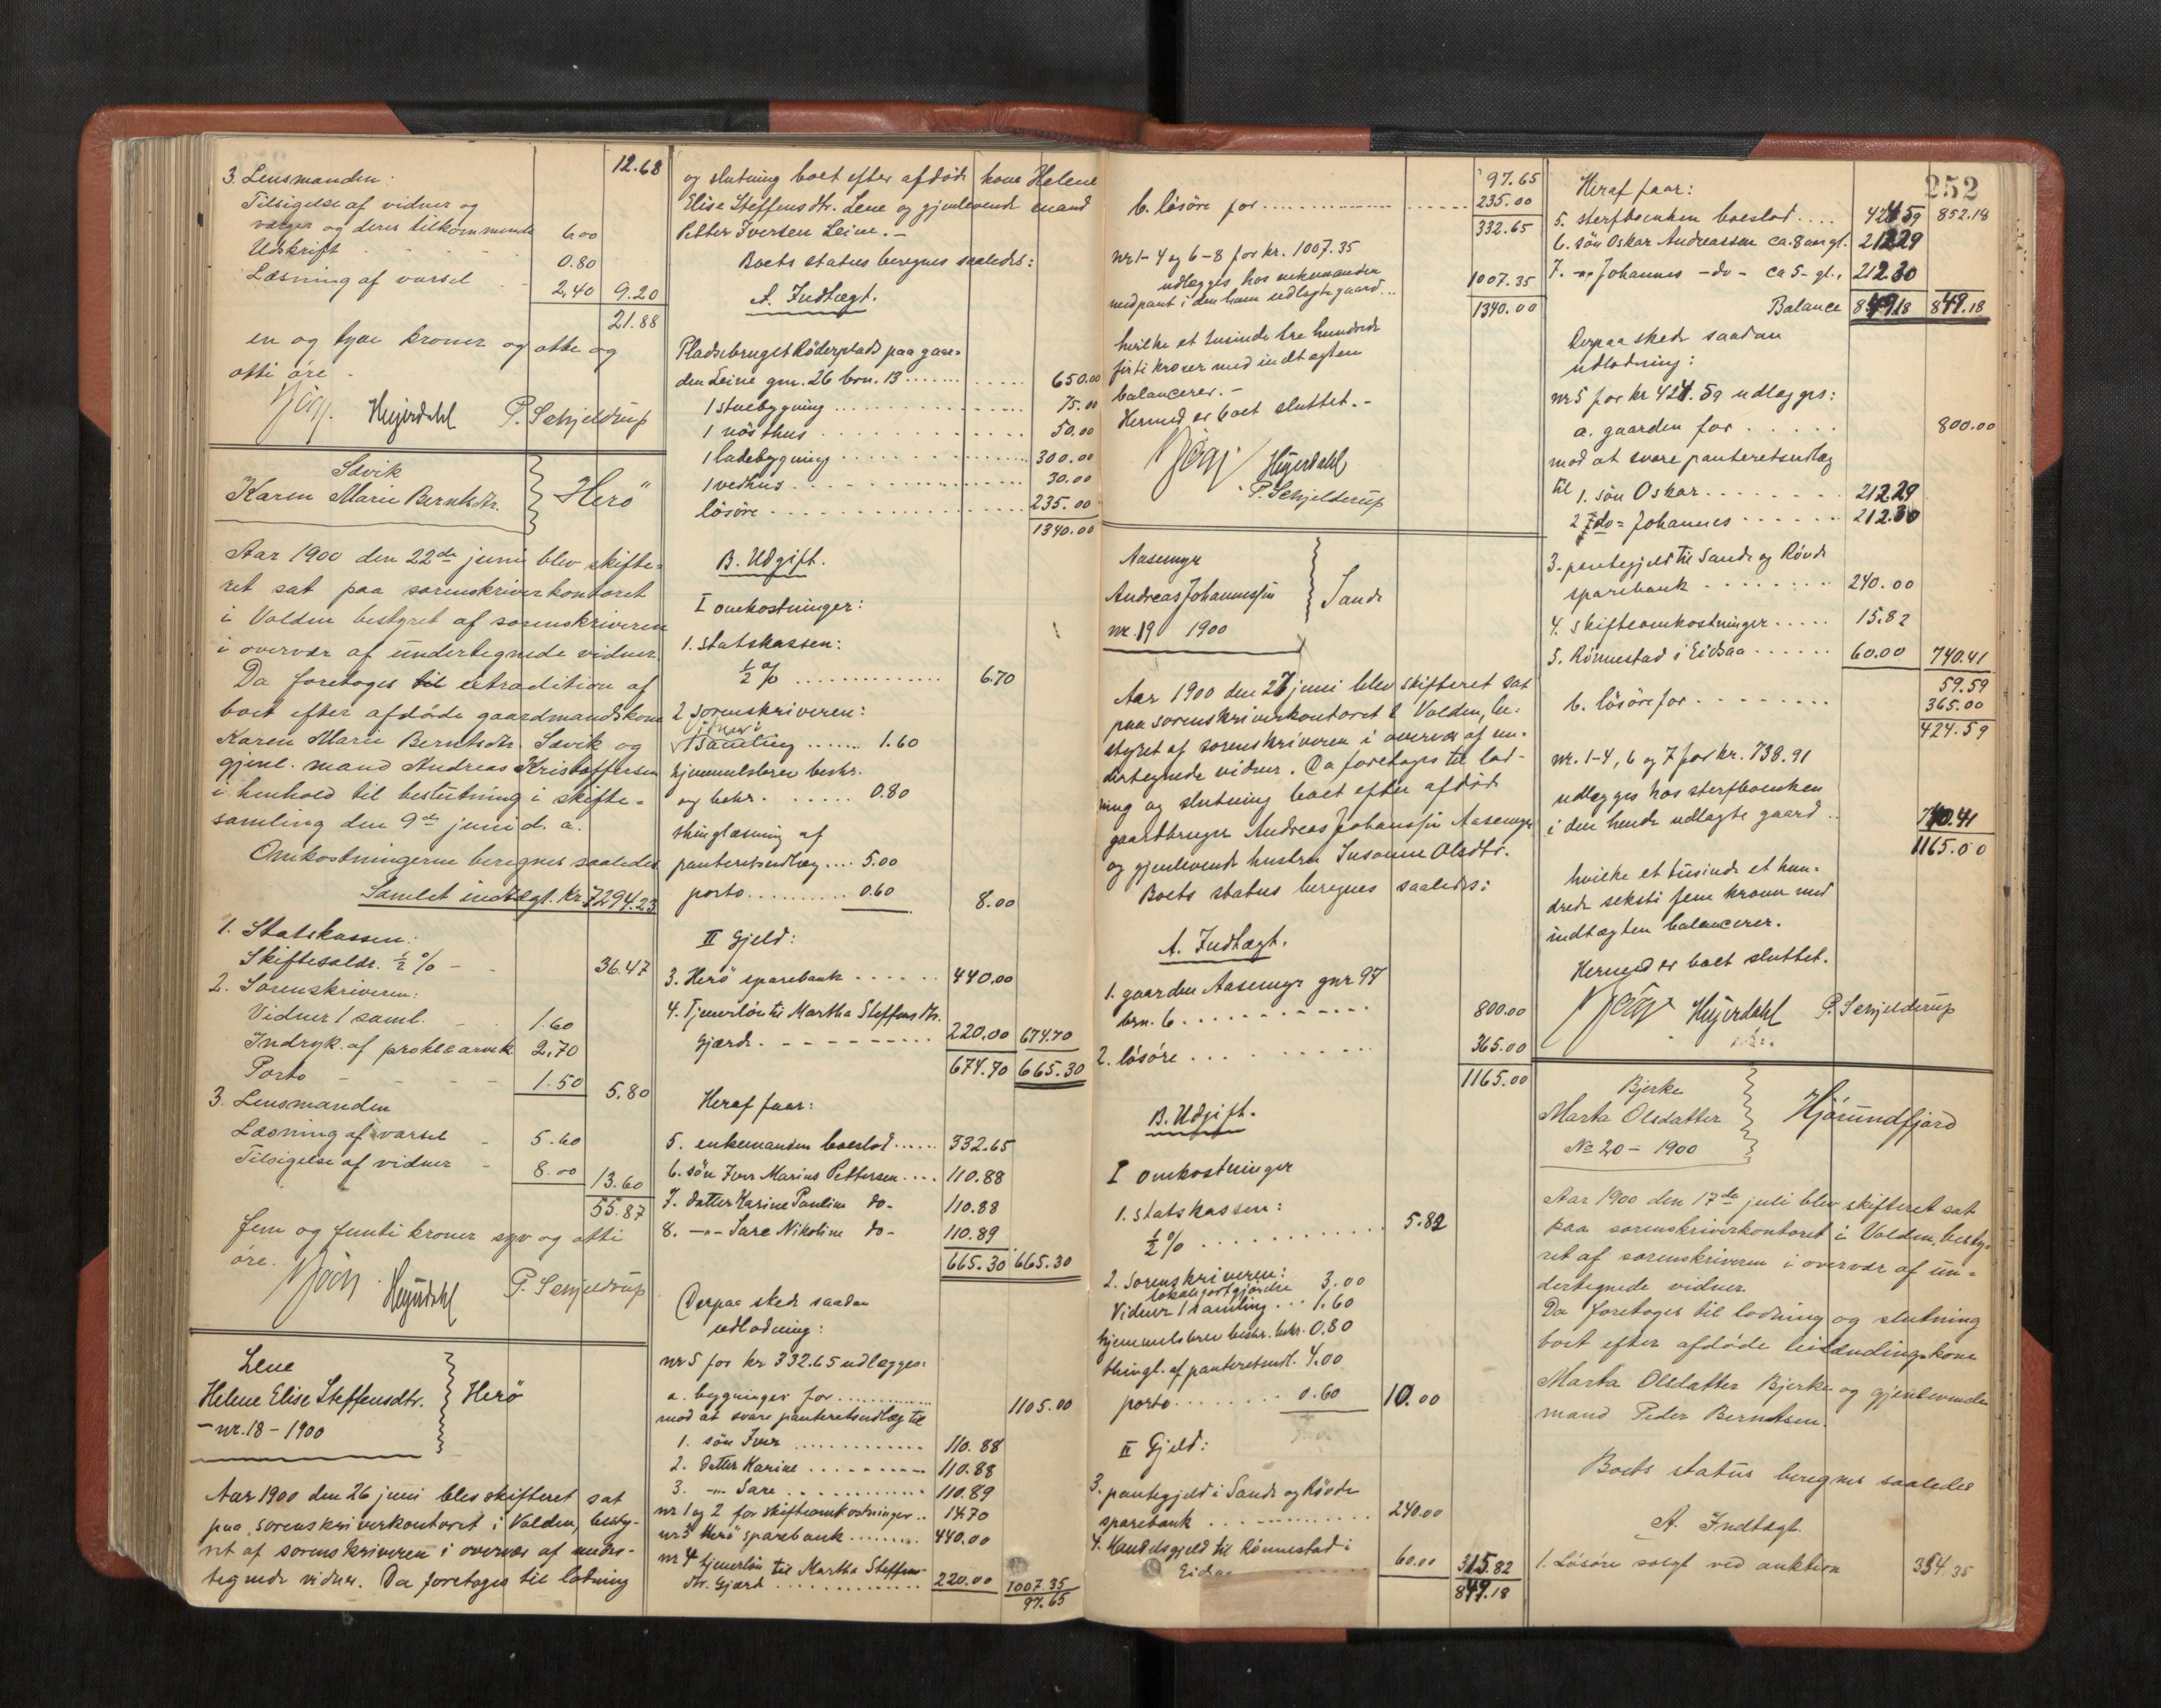 12.68
3. Lensmanden:
Tilsigelse af vidner og
værger og deres tilkommende 6.00
Udskrift 0.80
Læsning af varsel 2,40 9.20
21.88
en og tyve kroner og otte og
otti øre -
Heyerdahl P. Schjeldrup
Søvik
Karen Marie Berntsdtr. Herö
Aar 1900 den 22de juni blev skifte-
ret sat paa sorenskriverkontoret
i Volden bestyret af sorenskriveren
i overvær af undertegnede vidner.
Da foretoges til extradition af
boet efter afdöde gaardmandskone
Karen Marie Berntsdtr. Søvik og
gjenl. mand Andreas Kristoffersen
i henhold til beslutning i skifte-
samling den 9de juni d. a.
Omkostningerne beregnes saaledes
Samlet indtægt. Kr. 7294.23
1. Statskassen:
Skiftesaldr. ½ % - - 36.47
2. Sorenskriveren:
Vidner 1 saml. - 1.60
Indryk. af proklama 2,70
Porto - - - - 1.50 5.80
3. Lensmanden
Læsning af varsel - 5.60
Tilsigelse af vidner - 8.00 13.60
55.87
fem og femti kroner syv og otti
öre.
Heyerdahl P. Schjeldrup
Leue
Helene Elise Steffensdtr. Herö
- nr. 18 - 1900
Aar 1900 den 26 juni blev skifteret sat
paa sorenskriverkontoret i Volden, besty-
ret af sorenskriveren i overvær af under-
tegnede vidner. Da foretoges til lodning
og slutning boet efter afdöde kone Helene
Elise Steffensdtr. Leue og gjenlevende mand
Petter Iversen Leine. -
Boets status beregnes saaledes:
A. Indtægt.
Pladsebruget Röderplads paa gaar-
den Leine gnr. 26 brn. 13 ....... 650.00
1 stuebygning ....... 75.00
1 nösthus ....... 50.00
1 ladebygning ....... 300.00
1 vedhus ....... 30.00
lösöre ....... 235.00
1340.00
B. Udgift.
I omkostninger:
1. statskassen:
½ % ....... 6.70
2 sorenskriveren:
vidner i
1 samling ....... 1.60
hjemmelsbrev beskr.
og bekr. ...... 0.80
thinglæsning af
panteretsudlæg .... 5.00
porto ......... 0.60 8.00
II Gjeld:
3. Herö sparebank ...... 440.00
4. Tjenerlön til Martha Steffensdtr.
Gjærde - - - - - 220.00 674.70
674.70 665.30
Heraf faar:
5. enkemanden boeslod ...... 332.65
6. sön Iver Marius Pettersen .... 110.88
7. datter Karine Pauline do- 110.88
8. -"- Sare Nikoline do- 110.89
665.30 665.30
Derpaa skede saadan
udlodning:
nr 5 for kr 332.65 udlægges:
a. bygninger for ....... 1105.00
mod at svare panteretsudlæg til
1. sön Iver ....... 110.88
2. datter Karine ....... 110.88
3. -"- Sare ....... 110.89
nr 1 og 2 for skifteomkostninger .. 14.70
nr 3 Herö sparebank ....... 440.00
nr 4 tjenerlön til Martha Steffens-
dtr. Gjærd ....... 220.00 1007.35
97.65
97.65
b. lösöre for ....... 235.00
332.65
nr 1-4 og 6-8 for kr. 1007.35
udlægges hos enkemanden
med pant i den ham udlagte gaard ... 1007.35
1340.00
hvilke et tusinde tre hundrede
firti kroner med indtægten
balancerer. -
Hermed er boet sluttet. -
Heyerdahl
P. Schjelderup
Aasemyr
Andreas Johannessön Sande
nr. 19 1900
Aar 1900 den 27 juni blev skifteret sat
paa sorenskriverkontoret i Volden, be-
styret af sorenskriveren i overvær af un-
dertegnede vidner. Da foretoges til lod-
ning og slutning boet efter afdöde
gaardbruger Andreas Johanssön Aasemyr
og gjenlevende hustru Susanne Olsdtr.
Boets status beregnes saaledes:
A. Indtægt.
1. gaarden Aasemyr gnr 97
brn. 6 ....... 800.00
2. lösöre ....... 365.00
1165.00
B. Udgift.
I omkostninger
1. statskassen:
½ % ....... 5.82
2. sorenskriveren:
lokalgodtgjörelse 3.00
Vidner 1 samling ... 1.60
hjemmelsbrev beskr. bekr. 0.80
thingl. af panteretsudl. 4.00
porto ....... 0.60 10.00
II Gjeld:
3. pantegjeld i Sande og Rövde
sparebank ....... 240.00
4. Handelsgjeld til Rönnestad i
Eidsaa 60.00 315.82
849.18
252
Heraf faar:
5. sterfboenken boeslod .... 424.59 852.18
6. sön Oskar Andreassen ca. 8 aar gl. 212.29
7. -"- Johannes -do- ca 5- gl., 212.30
Balance 849.18 849.18
Derpaa skede saadan
udlodning:
nr 5 for kr 424.59 udlægges:
a. gaarden for ..... 800.00
mod at svare panteretsudlæg
til 1. sön Oskar ....... 212.29
2 do = Johannes ...... 212.30
3. pantegjeld til Sande og Rövde
sparebank ....... 240.00
4. skifteomkostninger ..... 15.82
5. Rönnestad i Eidsaa ...... 60.00 740.41
59.59
b. lösöre for ....... 365.00
424.59
nr. 1-4, 6 og 7 for kr. 738.91
udlægges hos sterfboenken
i den hende udlagte gaard .. 740.41
1165.00
hvilke et tusinde et hun-
drede seksti fem kroner med
indtægten balancerer.
Hermed er boet sluttet.
Heyerdahl P. Schjelderup
Bjerke
Marta Olsdatter Hjörundfjord
No 20 - 1900
Aar 1900 den 17de juli blev skifteret sat
paa sorenskriverkontoret i Volden, besty-
ret af sorenskriveren i overvær af un-
dertegnede vidner.
Da foretoges til lodning og slutning
boet efter afdöde leilændingskone
Marta Olsdatter Bjerke og gjenlevende
mand Peder Berntsen.
Boets status beregnes saaledes
A. Indtægt.
1. Lösöre solgt ved auktion 354.35